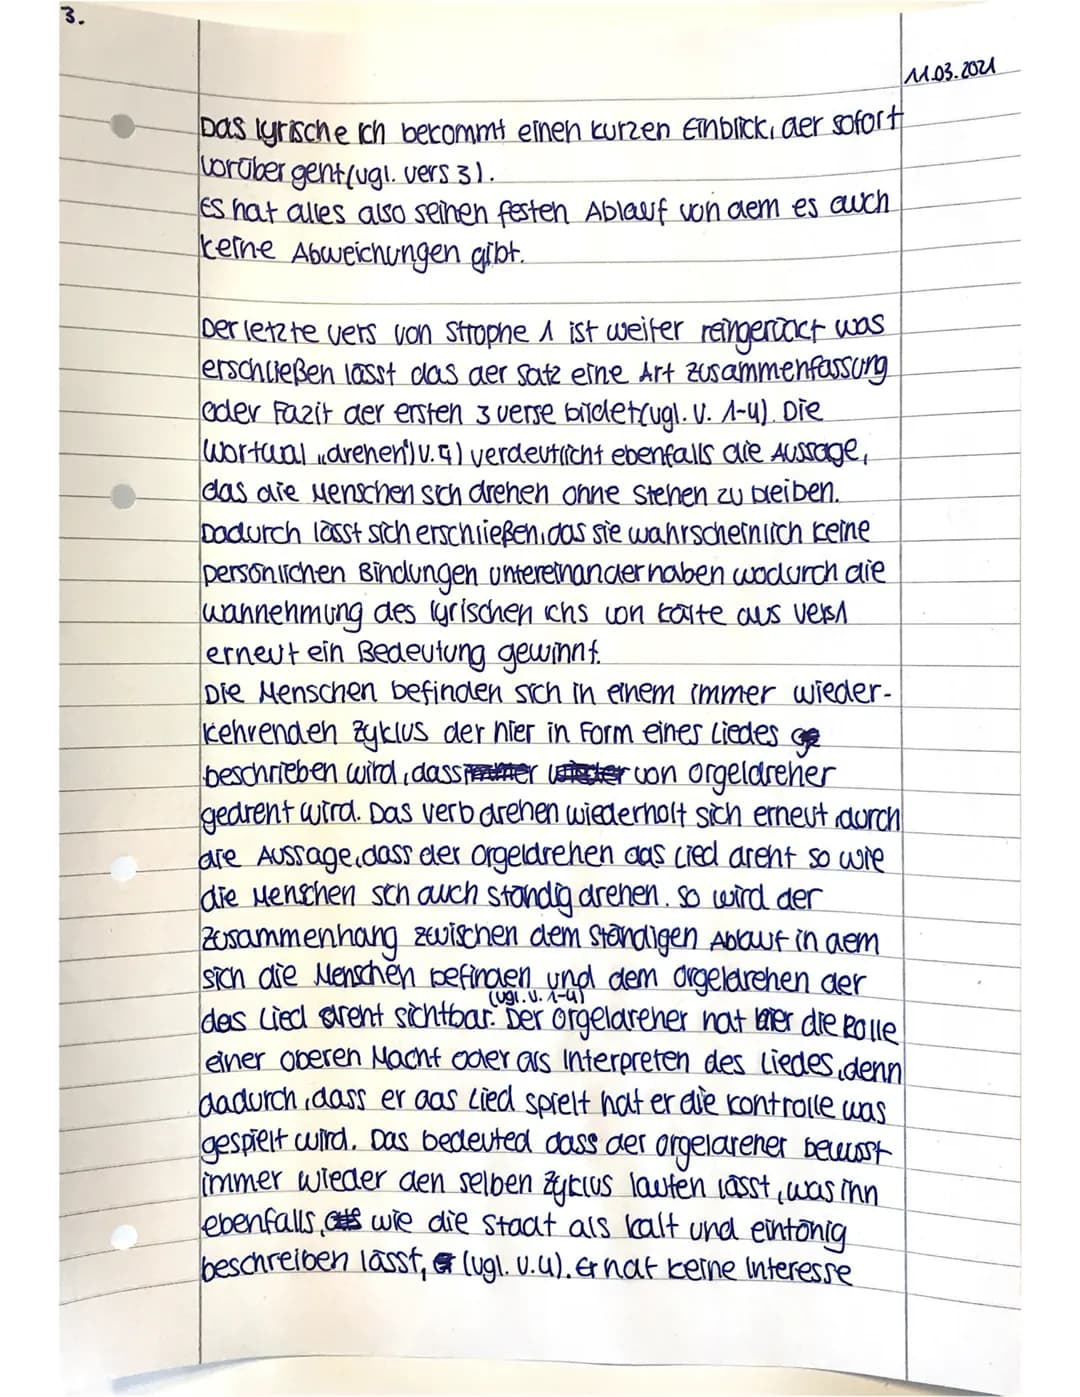 3.
11.03.2021
Das lyrische Ich bekommt einen kurzen Einblick, der sofort
vorüber geht (vgl. Vers 3).
Es hat alles also seinen festen Ablauf von dem es auch
keine Abweichungen gibt.
Der letzte Vers von Strophe 1 ist weiter reingerückt was
erschließen lässt das der Satz eine Art Zusammenfassung
oder Fazit der ersten 3 Verse bildet (vgl. V. 1-4). Die
Wortwahl „drehen“ (V. 4) verdeutlicht ebenfalls die Aussage,
das die Menschen sich drehen ohne stehen zu bleiben.
Dadurch lässt sich erschließen, das sie wahrscheinlich keine
persönlichen Bindungen untereinander haben wodurch die
wahnehmung des lyrischen ichs von kälte aus vers 1
erneut ein Bedeutung gewinnt.
Die Menschen befinden sich in einem immer wieder-
kehrenden Zyklus der hier in Form eines Liedes
beschrieben wird, dass von Orgeldreher
gedreht wird. Das verb drehen wiederholt sich erneut durch
die Aussage, dass der Orgeldrehen das Lied dreht so wie
die Menschen sch auch ständig drehen. So wird der
Zusammenhang zwischen dem ständigen Ablauf in dem
sich die Menschen befinden und dem Orgeldrehen der
(vgl. V. 1-4)
das Lied dreht sichtbar. Der Orgeldreher hat hier die Rolle
einer oberen Macht oder als Interpreten des Liedes, denn
dadurch, dass er das Lied spielt hat er die kontrolle was
gespielt wird. Das bedeuted dass der Orgeldreher bewusst
immer wieder den selben Zyklus laufen lässt, was ihn
ebenfalls, wie die Stadt als kalt und eintönig
beschreiben lässt, (vgl. V. 4). Er hat keine Interesse